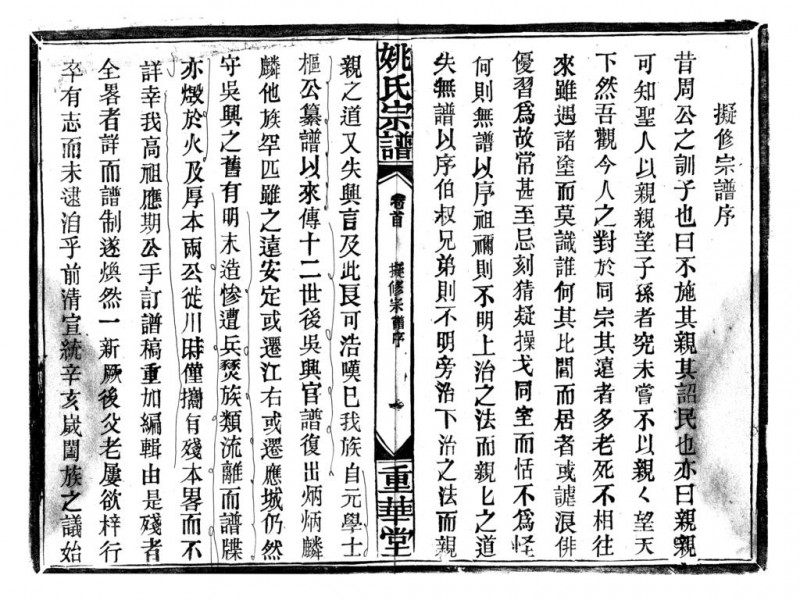 擬修宗譜序
昔周公之訓子也曰不施其親其詔民也亦曰親親
可知聖人以親親望子孫者究未嘗不以親々望天
下然吾觀今人之對於同宗其遠者多老死不相往
來雖遇諸塗而莫識誰何其比閭而居者或謔浪俳
優習為故常甚至忌刻猜疑操戈同室而恬不為怪
何則無譜以序祖禰則不明上治之法而親匕之道
失無譜以序伯叔兄弟則不明旁治下治之法而親
姚氏宗譜
卷首
擬修宗譜序
一
重華堂
親之道又失興言及此良可浩嘆已我族自元學士
樞公纂譜以來傳十二世後吳興官譜復出炳炳麟
麟他族罕匹雖之遠安定或遷江右或遷應城仍然
守吳興之舊有明末造慘遭兵燹族類流離而譜牒
亦燬於火及厚本兩公徙川時僅攜有殘本畧而不
詳幸我高祖應期公手訂譜稿重加編輯由是殘者
全畧者詳而譜制遂煥然一新厥後父老屢欲梓行
卒有志而未逮洎乎前清宣統辛亥歲闔族之議始